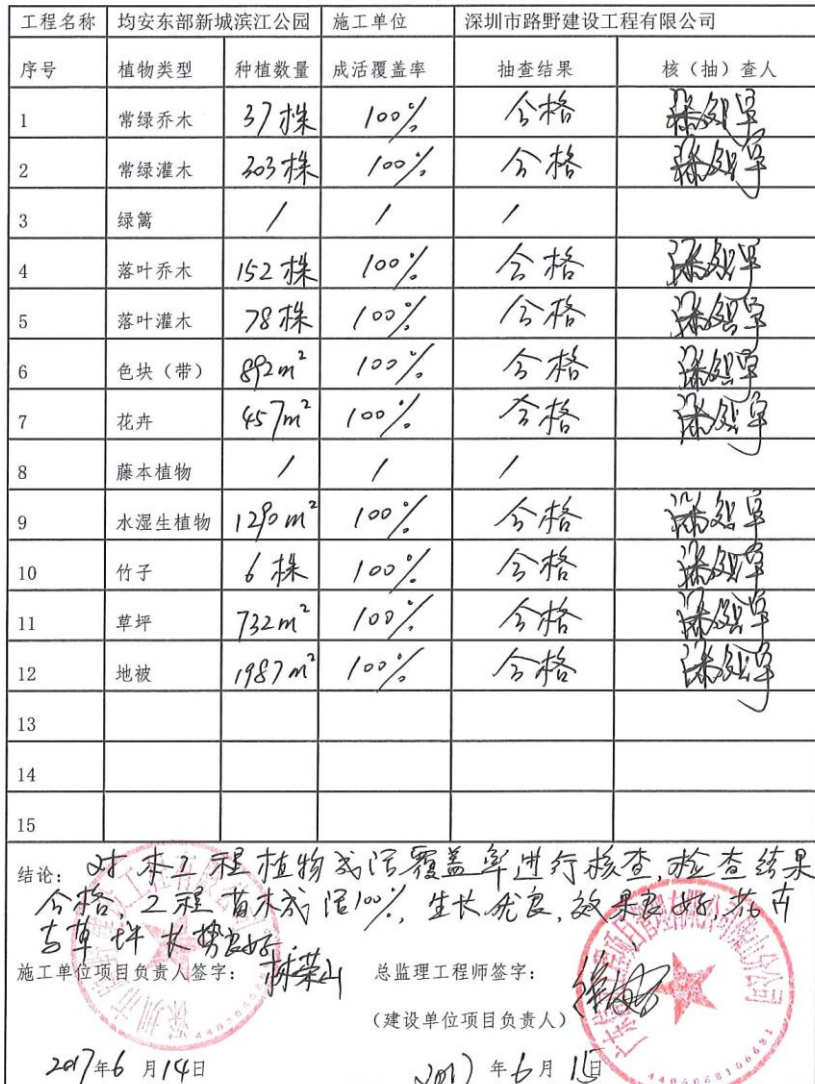 工程名称 均安东部新城滨江公园 施工单位 深圳市路野建设工程有限公司
序号 植物类型 种植数量 成活覆盖率 抽查结果 核（抽）查人
1 常绿乔木 37株 100% 合格
2 常绿灌木 303株 100% 合格
3 绿篱 / / /
4 落叶乔木 152株 100% 合格
5 落叶灌木 78株 100% 合格
6 色块（带） 892m² 100% 合格
7 花卉 457m² 100% 合格
8 藤本植物 / / /
9 水湿生植物 1290m² 100% 合格
10 竹子 6株 100% 合格
11 草坪 732m² 100% 合格
12 地被 1987m² 100% 合格
13
14
15
结论：对本工程植物成活覆盖率进行核查，检查结果
合格，工程苗木成活100%，生长优良，效果良好，花卉
与草坪长势良好.
施工单位项目负责人签字： 总监理工程师签字：
（建设单位项目负责人）
2017年6月14日 2017年6月15日